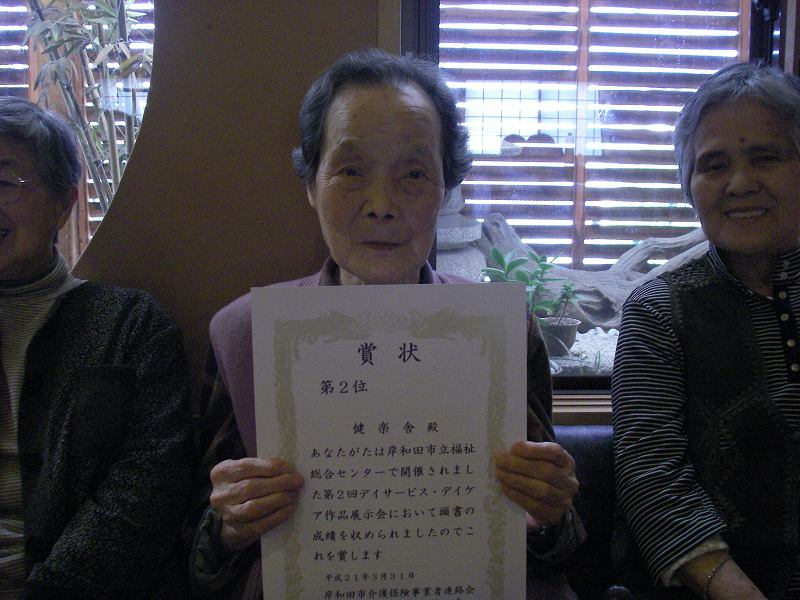 賞状
第2位
健楽舎殿
あなたがたは岸和田市立福祉
総合センターで開催されまし
た第2回デイサービス・デイケ
ア作品展示会において頭書の
成績を収められましたのでこ
れを賞します
平成21年3月31日
岸和田市介護保険事業者連絡会